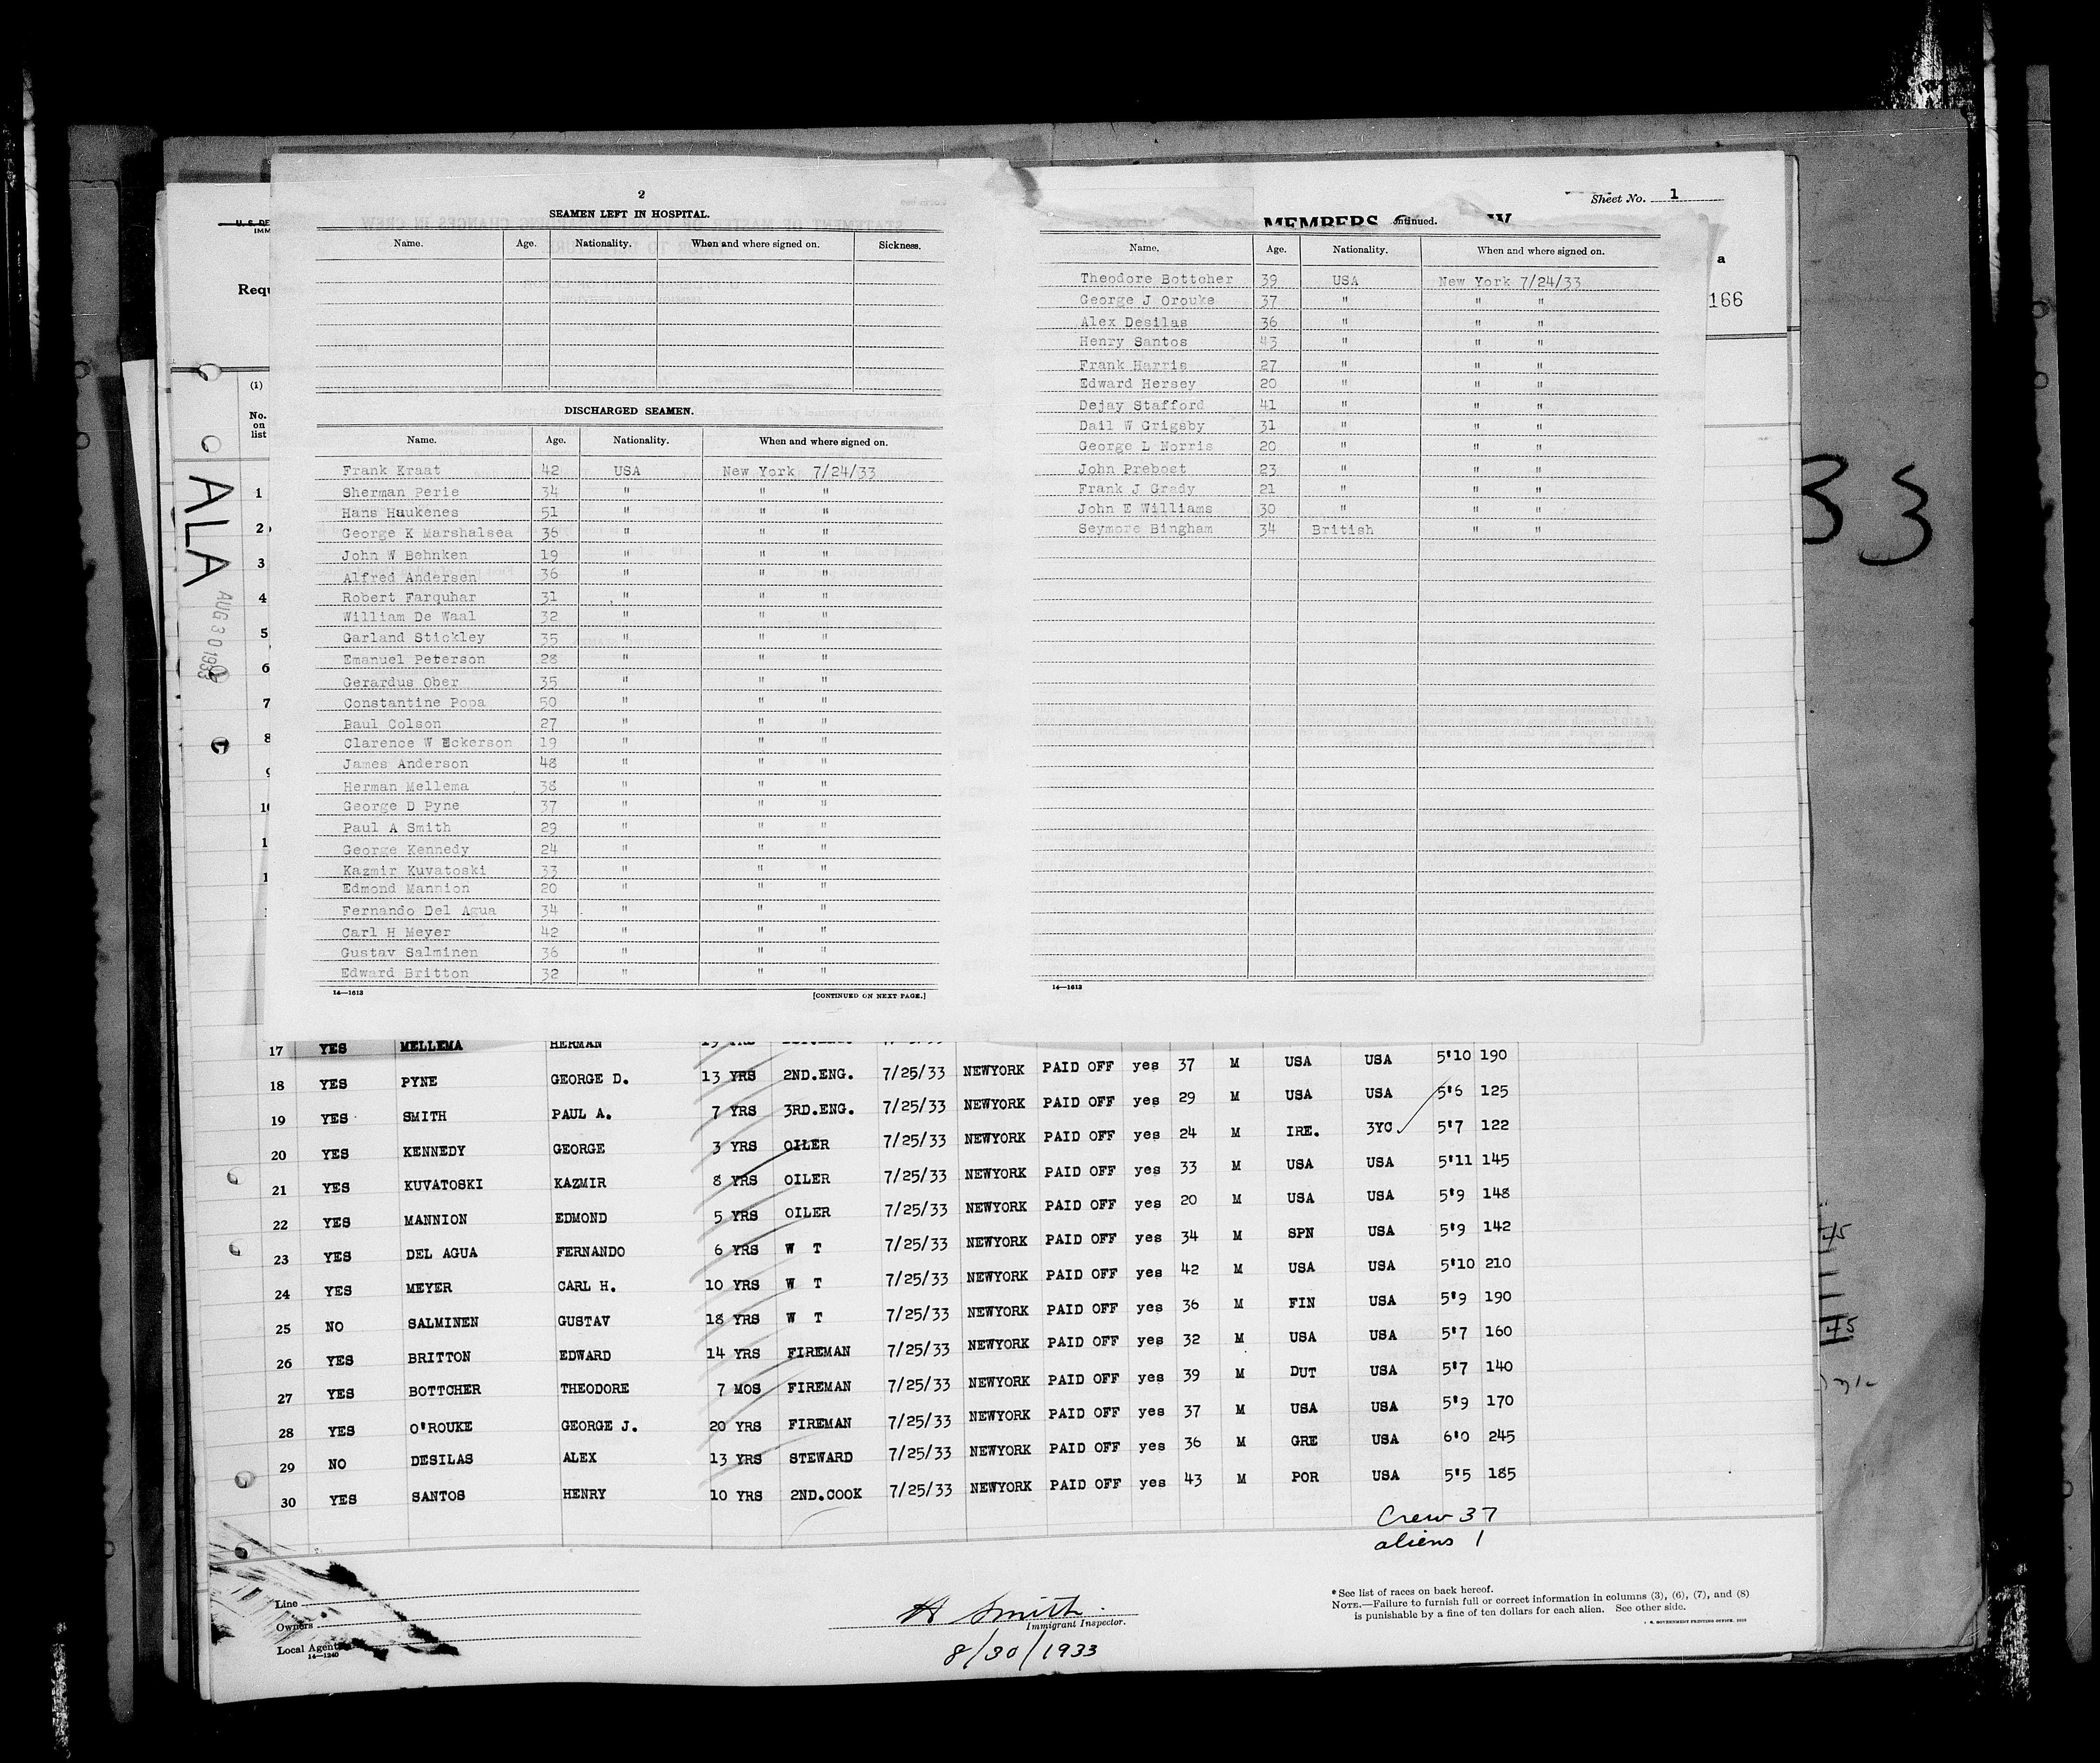 2
SEAMEN LEFT IN HOSPITAL.
Name. Age. Nationality. When and where signed on. Sickness.
DISCHARGED SEAMEN.
Name. Age. Nationality. When and where signed on.
Frank Kraat 42 USA New York 7/24/33
Sherman Perie 34 " " "
Hans Haukenes 51 " " "
George K Marshalsea 36 " " "
John W Behnken 19 " " "
Alfred Andersen 36 " " "
Robert Farquhar 31 " " "
William De Waal 32 " " "
Garland Stickley 35 " " "
Emanuel Peterson 28 " " "
Gerardus Ober 35 " " "
Constantine Popa 50 " " "
Paul Colson 27 " " "
Clarence W Eckerson 19 " " "
James Anderson 48 " " "
Herman Mellema 38 " " "
George D Pyne 37 " " "
Paul A Smith 29 " " "
George Kennedy 24 " " "
Kazmir Kuvatoski 33 " " "
Edmond Mannion 20 " " "
Fernando Del Agua 34 " " "
Carl H Meyer 42 " " "
Gustav Salminen 36 " " "
Edward Britton 32 " " "
14—1613 [CONTINUED ON NEXT PAGE.]
Sheet No. 1
MEMBERS
ntinued.
Name. Age. Nationality. When and where signed on.
Theodore Bottcher 39 USA New York 7/24/33
George J Orouke 37 " " "
Alex Desilas 36 " " "
Henry Santos 43 " " "
Frank Harris 27 " " "
Edward Hersey 20 " " "
Dejay Stafford 41 " " "
Dail W Grigsby 31 " " "
George L Norris 20 " " "
John Prebost 23 " " "
Frank J Grady 21 " " "
John E Williams 30 " " "
Seymore Bingham 34 British " "
14—1613
a
166
33
U. S. DE
IMM
Requ
(1)
No. on list
ALA
AUG 30 1933
1
2
3
4
5
6
7
8
17 YES MELLEMA HERMAN
18 YES PYNE GEORGE D. 13 YRS 2ND.ENG. 7/25/33 NEWYORK PAID OFF yes 37 M USA USA 5'10 190
19 YES SMITH PAUL A. 7 YRS 3RD.ENG. 7/25/33 NEWYORK PAID OFF yes 29 M USA USA 5'6 125
20 YES KENNEDY GEORGE 3 YRS OILER 7/25/33 NEWYORK PAID OFF yes 24 M IRE. 3YC 5'7 122
21 YES KUVATOSKI KAZMIR 8 YRS OILER 7/25/33 NEWYORK PAID OFF yes 33 M USA USA 5'11 145
22 YES MANNION EDMOND 5 YRS OILER 7/25/33 NEWYORK PAID OFF yes 20 M USA USA 5'9 148
23 YES DEL AGUA FERNANDO 6 YRS W T 7/25/33 NEWYORK PAID OFF yes 34 M SPN USA 5'9 142
24 YES MEYER CARL H. 10 YRS W T 7/25/33 NEWYORK PAID OFF yes 42 M USA USA 5'10 210
25 NO SALMINEN GUSTAV 18 YRS W T 7/25/33 NEWYORK PAID OFF yes 36 M FIN USA 5'9 190
26 YES BRITTON EDWARD 14 YRS FIREMAN 7/25/33 NEWYORK PAID OFF yes 32 M USA USA 5'7 160
27 YES BOTTCHER THEODORE 7 MOS FIREMAN 7/25/33 NEWYORK PAID OFF yes 39 M DUT USA 5'7 140
28 YES O'ROUKE GEORGE J. 20 YRS FIREMAN 7/25/33 NEWYORK PAID OFF yes 37 M USA USA 5'9 170
29 NO DESILAS ALEX 13 YRS STEWARD 7/25/33 NEWYORK PAID OFF yes 36 M GRE USA 6'0 245
30 YES SANTOS HENRY 10 YRS 2ND.COOK 7/25/33 NEWYORK PAID OFF yes 43 M POR USA 5'5 185
Crew 37
aliens 1
Line
Owners
Local Agent
14—1240
H Smith
Immigrant Inspector.
8/30/1933
* See list of races on back hereof.
NOTE.—Failure to furnish full or correct information in columns (3), (6), (7), and (8)
is punishable by a fine of ten dollars for each alien. See other side.
45
45